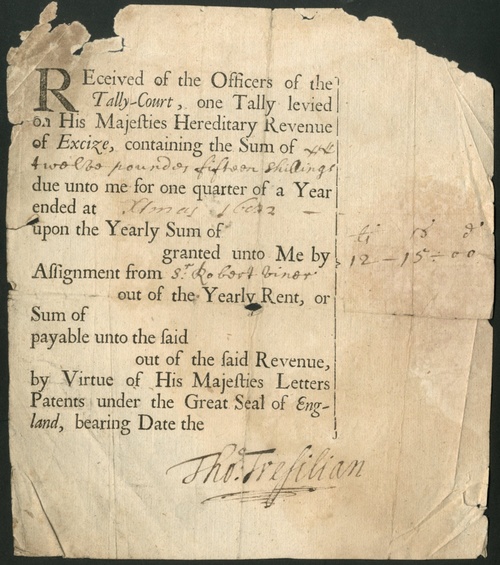 REceived of the Officers of the
Tally-Court, one Tally levied
on His Majeſties Hereditary Revenue
of Excize, containing the Sum of
twelve poundes fifteen shillings
due unto me for one quarter of a Year
ended at Xtmas
upon the Yearly Sum of
granted unto Me by
Aſſignment from Sr. Robert Viner
out of the Yearly Rent, or
Sum of
payable unto the ſaid
out of the ſaid Revenue,
by Virtue of His Majeſties Letters
Patents under the Great Seal of Eng-
land, bearing Date the
li s d
12 - 15 - 00
Tho: Treſilian